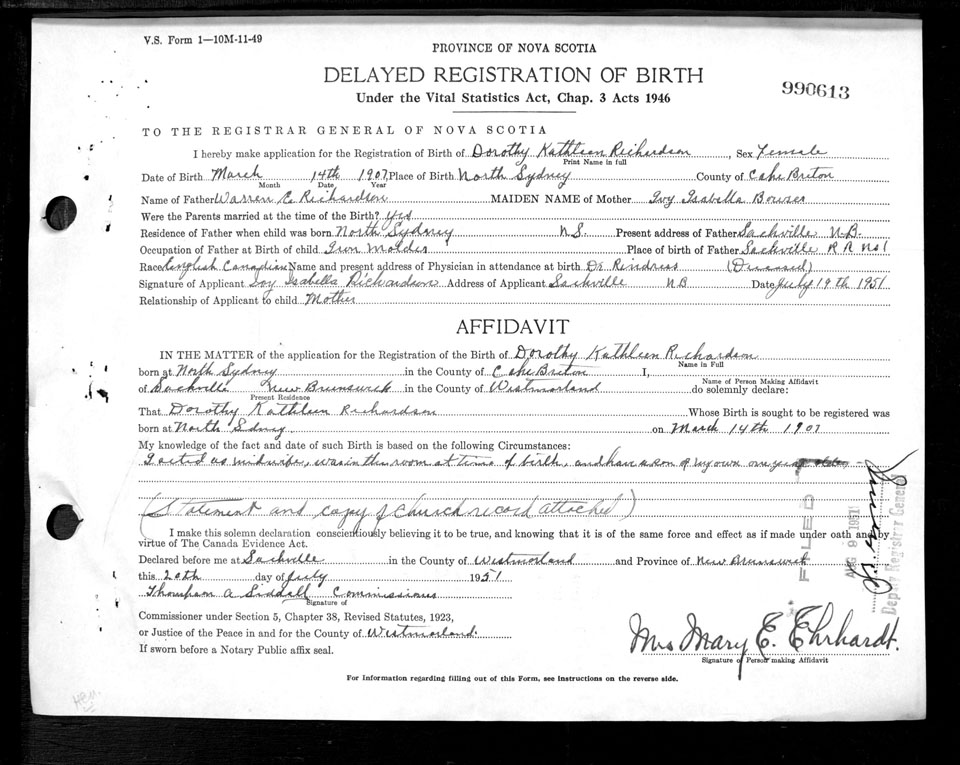 V.S. Form 1—10M-11-49
PROVINCE OF NOVA SCOTIA
DELAYED REGISTRATION OF BIRTH
Under the Vital Statistics Act, Chap. 3 Acts 1946
990613
TO THE REGISTRAR GENERAL OF NOVA SCOTIA
I hereby make application for the Registration of Birth of Dorothy Kathleen Richardson, Sex Female
Print Name in full
Date of Birth March 14th 1907, Place of Birth North Sydney County of Cape Briton
Month Date Year
Name of Father Warren C Richardson MAIDEN NAME of Mother Ivy Isabella Bowser
Were the Parents married at the time of the Birth? Yes
Residence of Father when child was born North Sydney N.S. Present address of Father Sackville N.B.
Occupation of Father at Birth of child Iron Molder Place of birth of Father Sackville R R No 1
Race English Canadian Name and present address of Physician in attendance at birth Dr. (Diseased)
Signature of Applicant Ivy Isabella Richardson Address of Applicant Sackville NB Date July 19th 1951
Relationship of Applicant to child Mother
AFFIDAVIT
IN THE MATTER of the application for the Registration of the Birth of Dorothy Kathleen Richardson
Name in Full
born at North Sydney in the County of Cape Briton I,
Name of Person Making Affidavit
of Sackville New Brunswick in the County of Westmorland do solemnly declare:
Present Residence
That Dorothy Kathleen Richardson Whose Birth is sought to be registered was
born at North Sdney. on March 14th 1907
My knowledge of the fact and date of such Birth is based on the following Circumstances:
I acted as midwife, was in the room at time of birth, and have a son of my own one year
(Statement and copy of Church record attached)
I make this solemn declaration conscientiously believing it to be true, and knowing that it is of the same force and effect as if made under oath and by
virtue of The Canada Evidence Act.
Declared before me at Sackville in the County of Westmorland and Province of New Brunswick
this 20th day of July 1951
Thompson A Siddall Commissions
Signature of
Commissioner under Section 5, Chapter 38, Revised Statutes, 1923,
or Justice of the Peace in and for the County of Westmorland.
If sworn before a Notary Public affix seal.
FILED
AUG 9 1951
Deputy Registrar General
Mrs Mary E. Ehrhardt.
Signature of Person making Affidavit
For Information regarding filling out of this Form, see instructions on the reverse side.